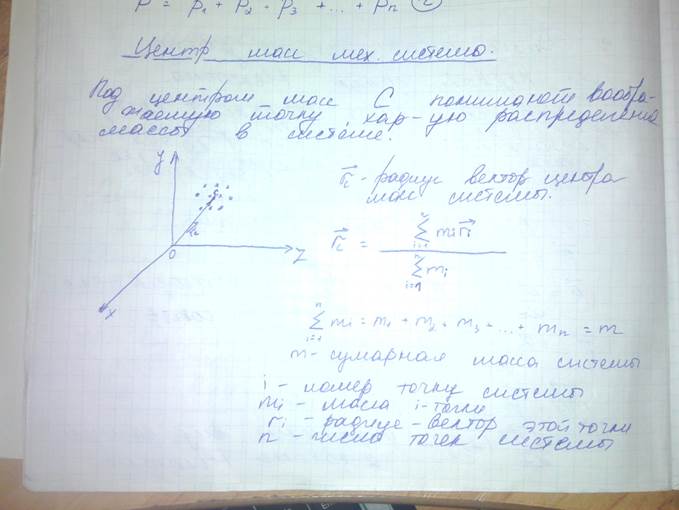 P = P₁ + P₂ + P₃ + ... + Pₙ (2)
Центр масс мех. система.
Под центром масс C понимают вообра-
жаемую точку хар-ую распределение
массы в системе.
y
C
r⃗c
0
z
x
r⃗c - радиус вектор центра
мас системы.
r⃗c = ∑ᵢ₌₁ⁿ mᵢr⃗ᵢ / ∑ᵢ₌₁ⁿ mᵢ
∑ᵢ₌₁ⁿ mᵢ = m₁ + m₂ + m₃ + ... + mₙ = m
m - сумарная маса системы
i - номер точку системы
mᵢ - маса i-точки
rᵢ - радиус-вектор этой точки
n - число точек системы